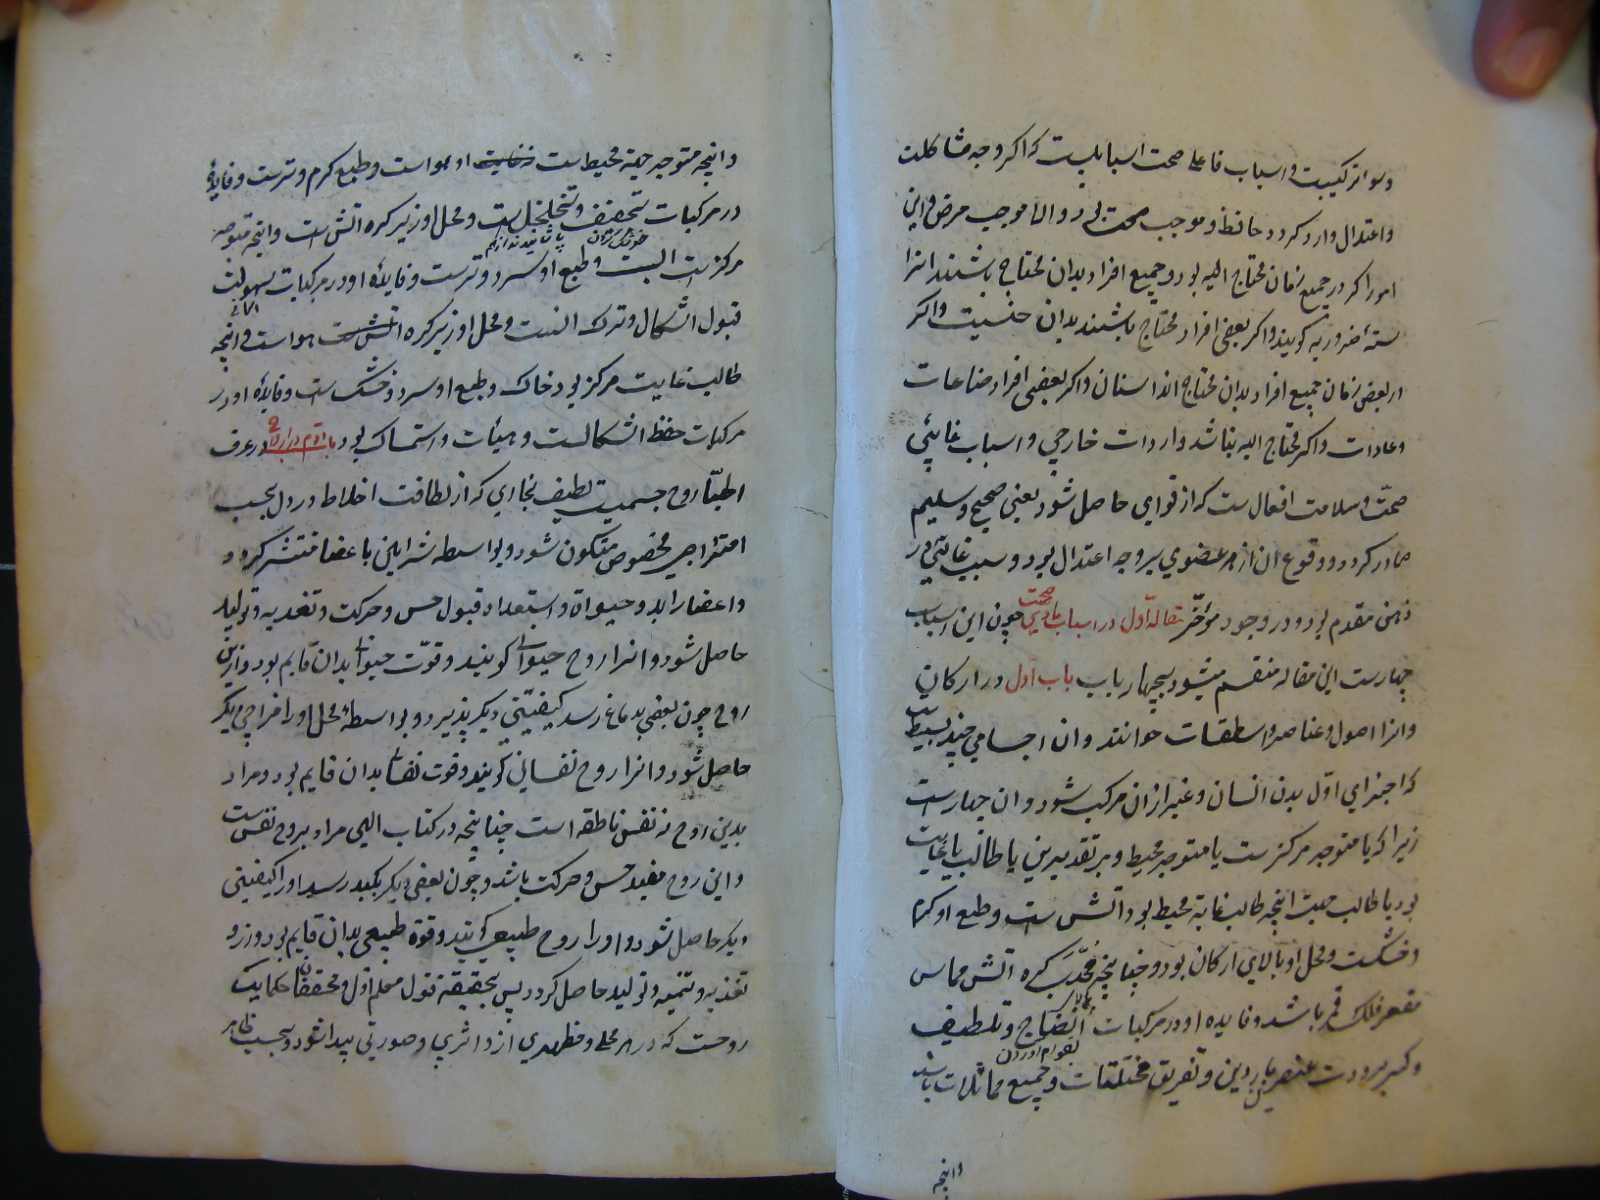 وسو ترکیبست و اسباب فاعلی صحت اسبابیست که اکر وجه مشاکلت
و اعتدال وارد کردد حافظ و موجب صحت بی و الا موجب مرض و این
امور اکر در جمیع زمان محتاج الیه بود و جمیع افراد بدان محتاج باشند انرا
سته ضروریه کویند و اکر بعضی افراد محتاج باشند بدان جنسیت و اکر
در بعض زمان جمیع افراد بدان محتاج اند اسنان و اکر بعضی افراد صناعات
و عادات و اکر محتاج الیه نباشد واردات خارجی و اسباب غایئی
صحت و سلامت افعال ست که از قوای حاصل شود یعنی صحیح و سلیم
صادر کردد و وقوع ان از هر عضوی بر وجه اعتدال بود و سبب غائی در
ذهن مقدم بود و در وجود مؤخر مقاله اول در اسباب مادی صحت چون این اسباب
چهارست این مقاله منقسم میشود بچهار باب باب اول در ارکان
و انرا اصول و عناصر و اسطقسات خوانند و ان اجسامی چند بسیط ست
که اجزای اول بدن انسان و غیر از ان مرکب شود و ان چهارست
زیرا که یا متوجه مرکزست یا متوجه محیط و بر تقدیرین یا طالب غایت
بود یا طالب جهت انچه طالب غایة محیط بود اتش ست و طبع او کرم
و خشکست و محل او بالای ارکان بود و چنانچه محدب کره اتش مماس
مقعر فلک قمر باشد و فایده او در مرکبات انضاج و تلطیف
بقوام اوردن
و کسر برودت عنصرین باردین و تفریق مختلفات و جمیع مماثلات باشد
وانچه
وانچه متوجه جهة محیط است او هواست و طبع کرم و ترست و فایده
در مرکبات تخفیف و تخلخل ست و محل او زیر کره اتش ست و انچه متوجه
مرکزست ابست و طبع او سرد و ترست و فایده او در مرکبات سهولت
قبول اشکال و ترک انست و محل او زیر کره هواست و انچه
طالب غایت مرکز بود خاک و طبع او سرد و خشک ست و فایده او در
مرکبات حفظ اشکالست و هیئات و استمساک بود باب دوم در ارواح در عرف
اطبا روح جسمیست لطیف بخاری که از لطافت اخلاط در دل بحسب
امتزاجی مخصوص متکون شود و بواسطه شرایین باعضا منتشر کردد
و اعضا را بدو حیواة و استعداد قبول حس و حرکت و تغدیه و تولید
حاصل شود و انرا روح حیوانی کویند و قوت حیوانی بدان قایم بود و ازین
روح چون بعضی بدماغ رسد کیفیتی دیکر پذیرد و بواسطه محل او را مزاجی دیکر
حاصل شود و انرا روح نفسانی کویند و قوت نفسانی بدان قایم بود و مراد
بدین روح نه نفس ناطقه است چنانچه در کتاب الهی مراد بروح نفس ست
و این روح مفید حس و حرکت باشد و چون بعضی دیکر بکبد رسد او را کیفیتی
دیکر حاصل شود و او را روح طبیعی کویند و قوة طبیعی بدان قایم بود و زو
تغذیه و تنمیه و تولید حاصل کردد پس بحقیقة قول معلم اول و محققان حکما یک
روحست که در هر محلی و مظهری ازو اثری و صورتی پیدا شود و بحسب ظاهر